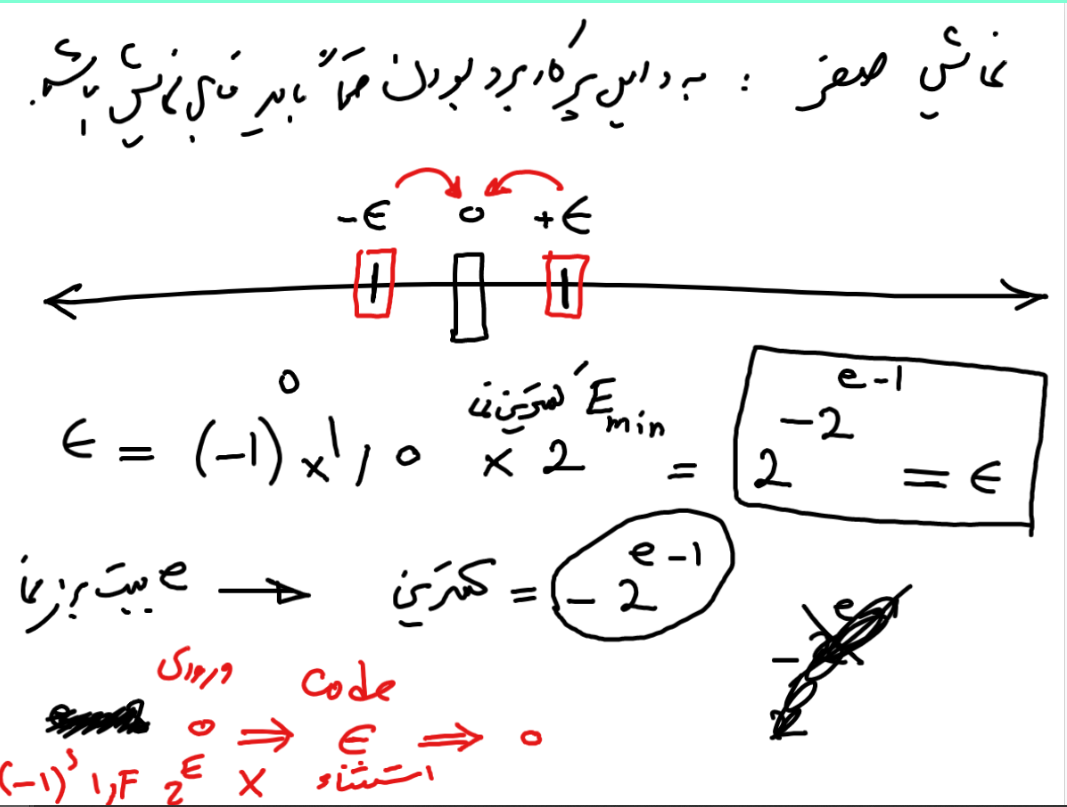 نمایش صفر : به دلیل پرکاربرد بودن حتماً باید قابل نمایش باشد.
-ϵ 0 +ϵ
ϵ = (-1)^0 × 1,0 × 2^(کمترین نما E_min) = 2^(-2^(e-1)) = ϵ
e بیت برای نما → کمترین = -2^(e-1)
ورودی Code
0 ⇒ ϵ ⇒ 0
(-1)^s 1,F 2^E × استثناء